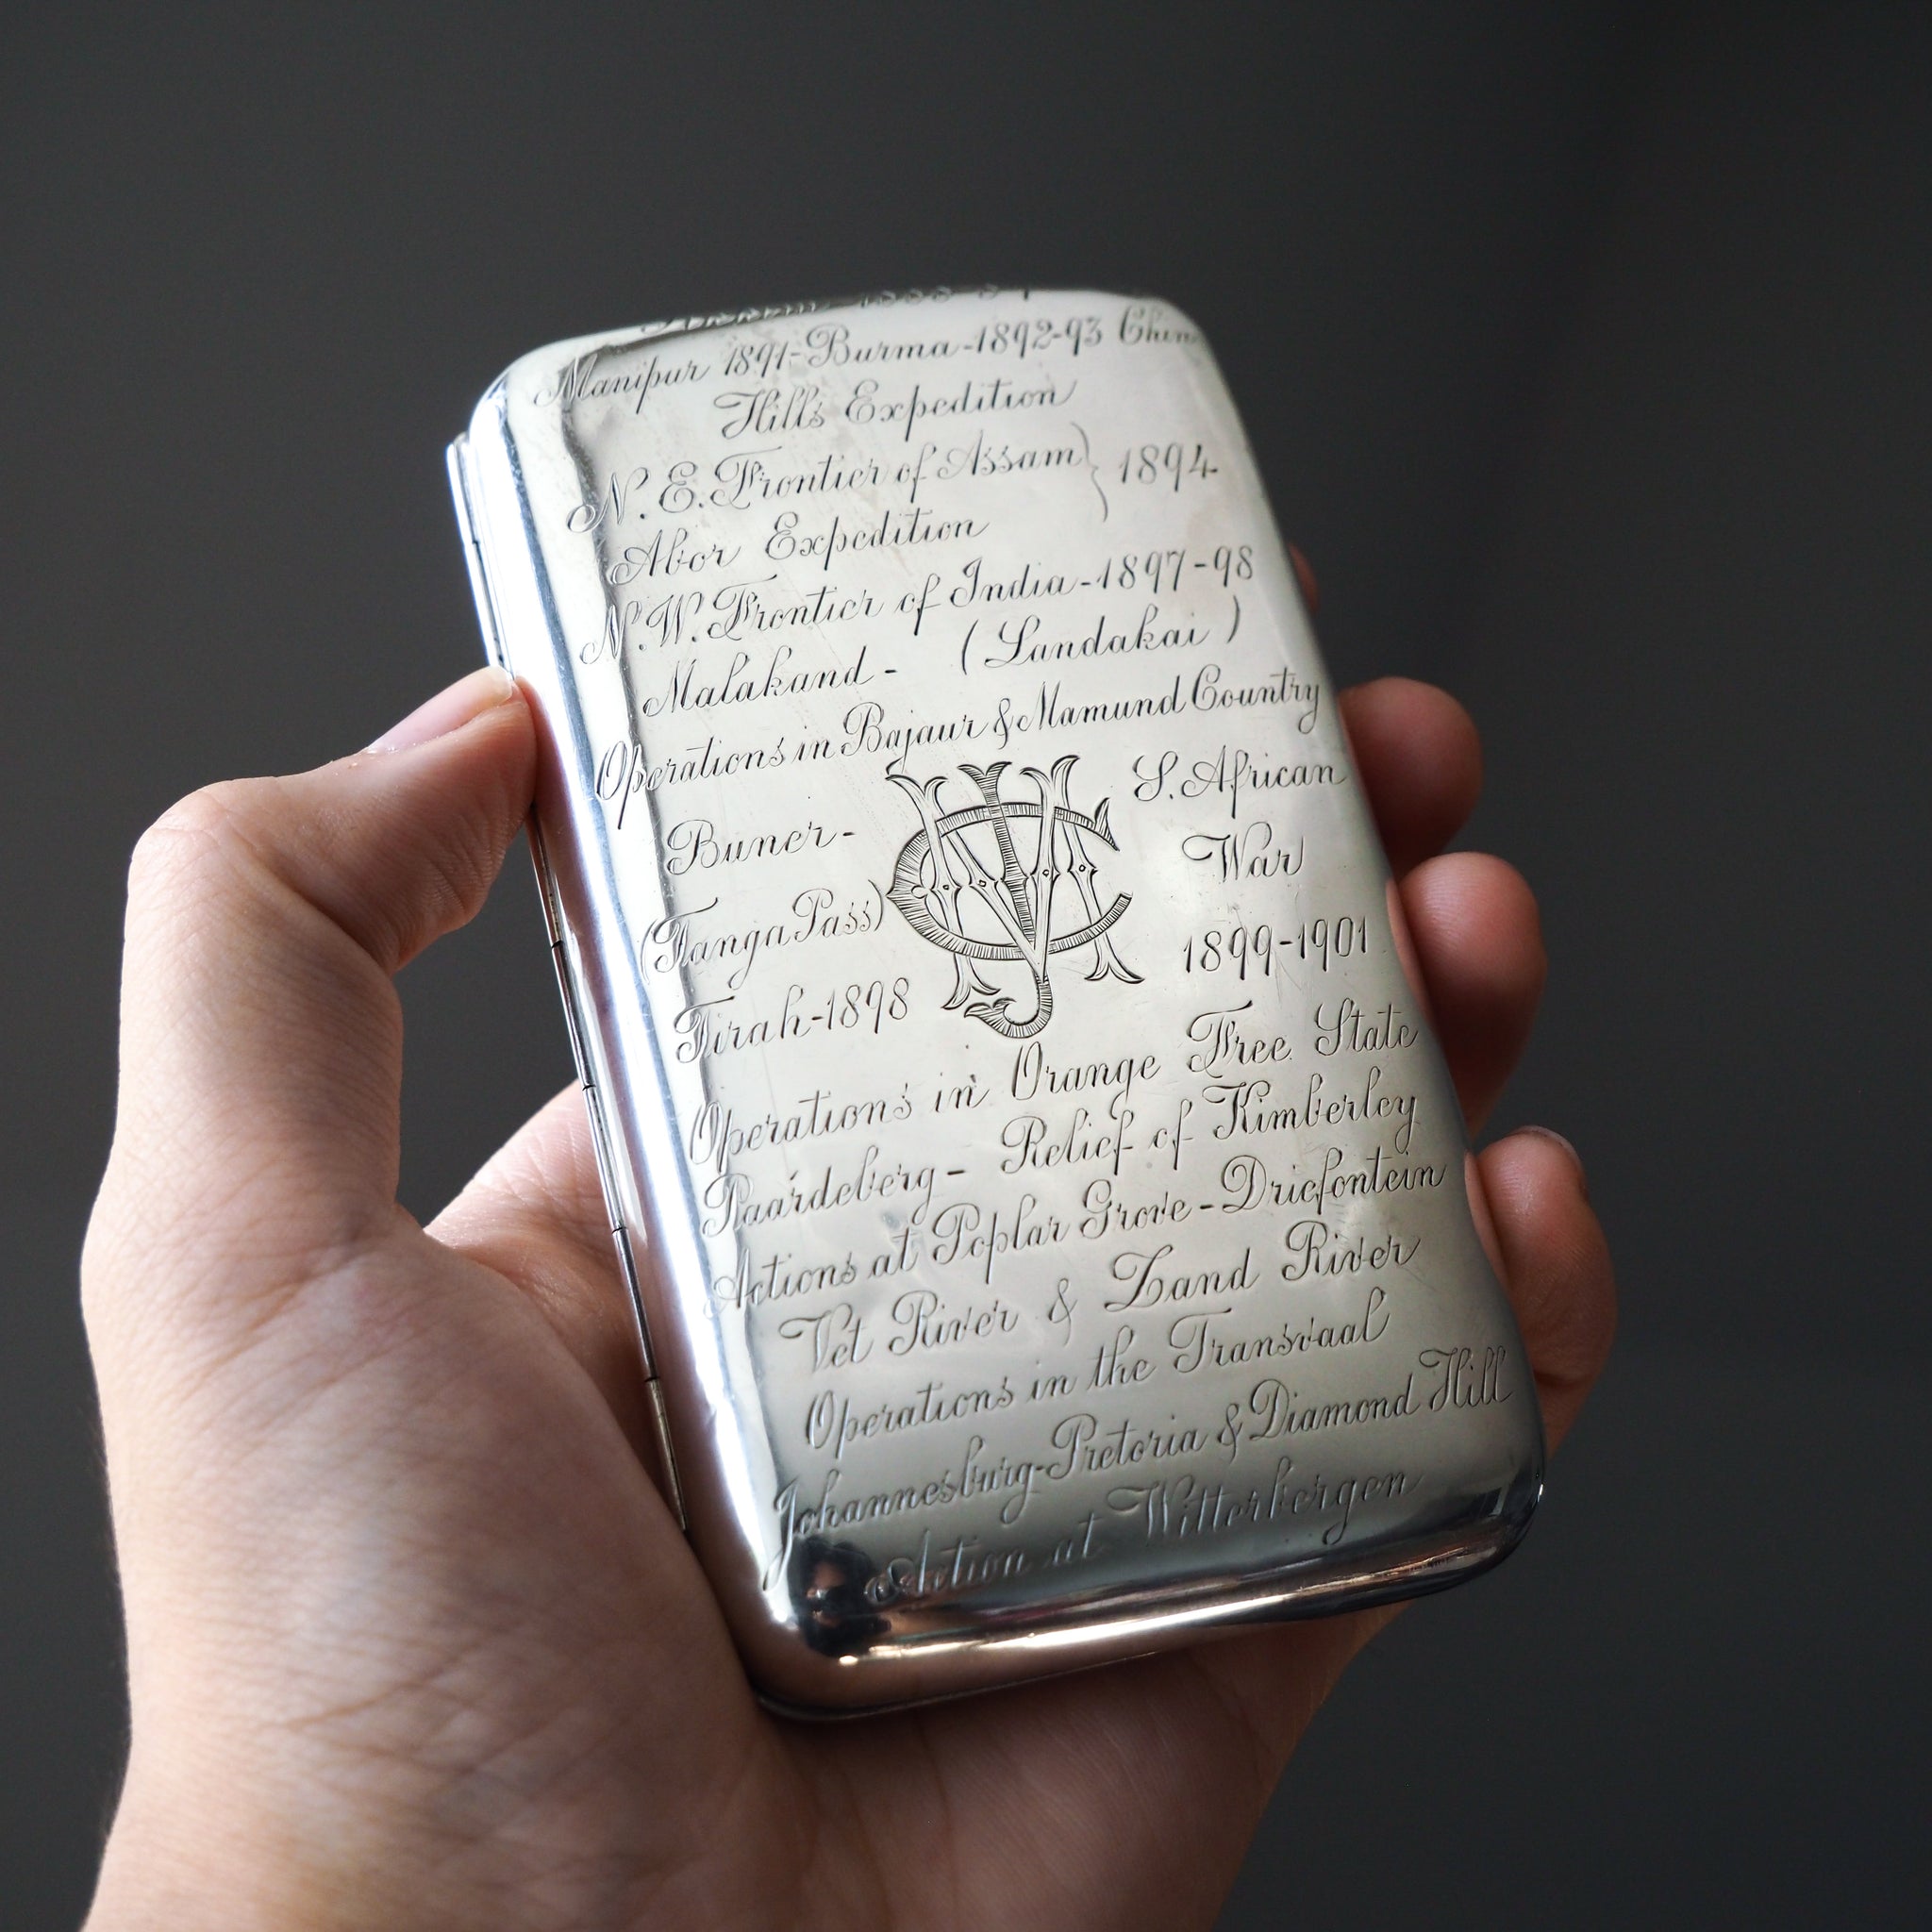 Manipur 1891-Burma-1892-93 Chin
Hills Expedition
N.E. Frontier of Assam } 1894
Abor Expedition
N.W. Frontier of India-1897-98
Malakand - (Landakai)
Operations in Bajaur & Mamund Country
Buner- S. African
(Tanga Pass) War
Tirah-1898 1899-1901
Operations in Orange Free State
Paardeberg - Relief of Kimberley
Actions at Poplar Grove - Driefontein
Vet River & Zand River
Operations in the Transvaal
Johannesburg-Pretoria & Diamond Hill
Action at Witterbergen